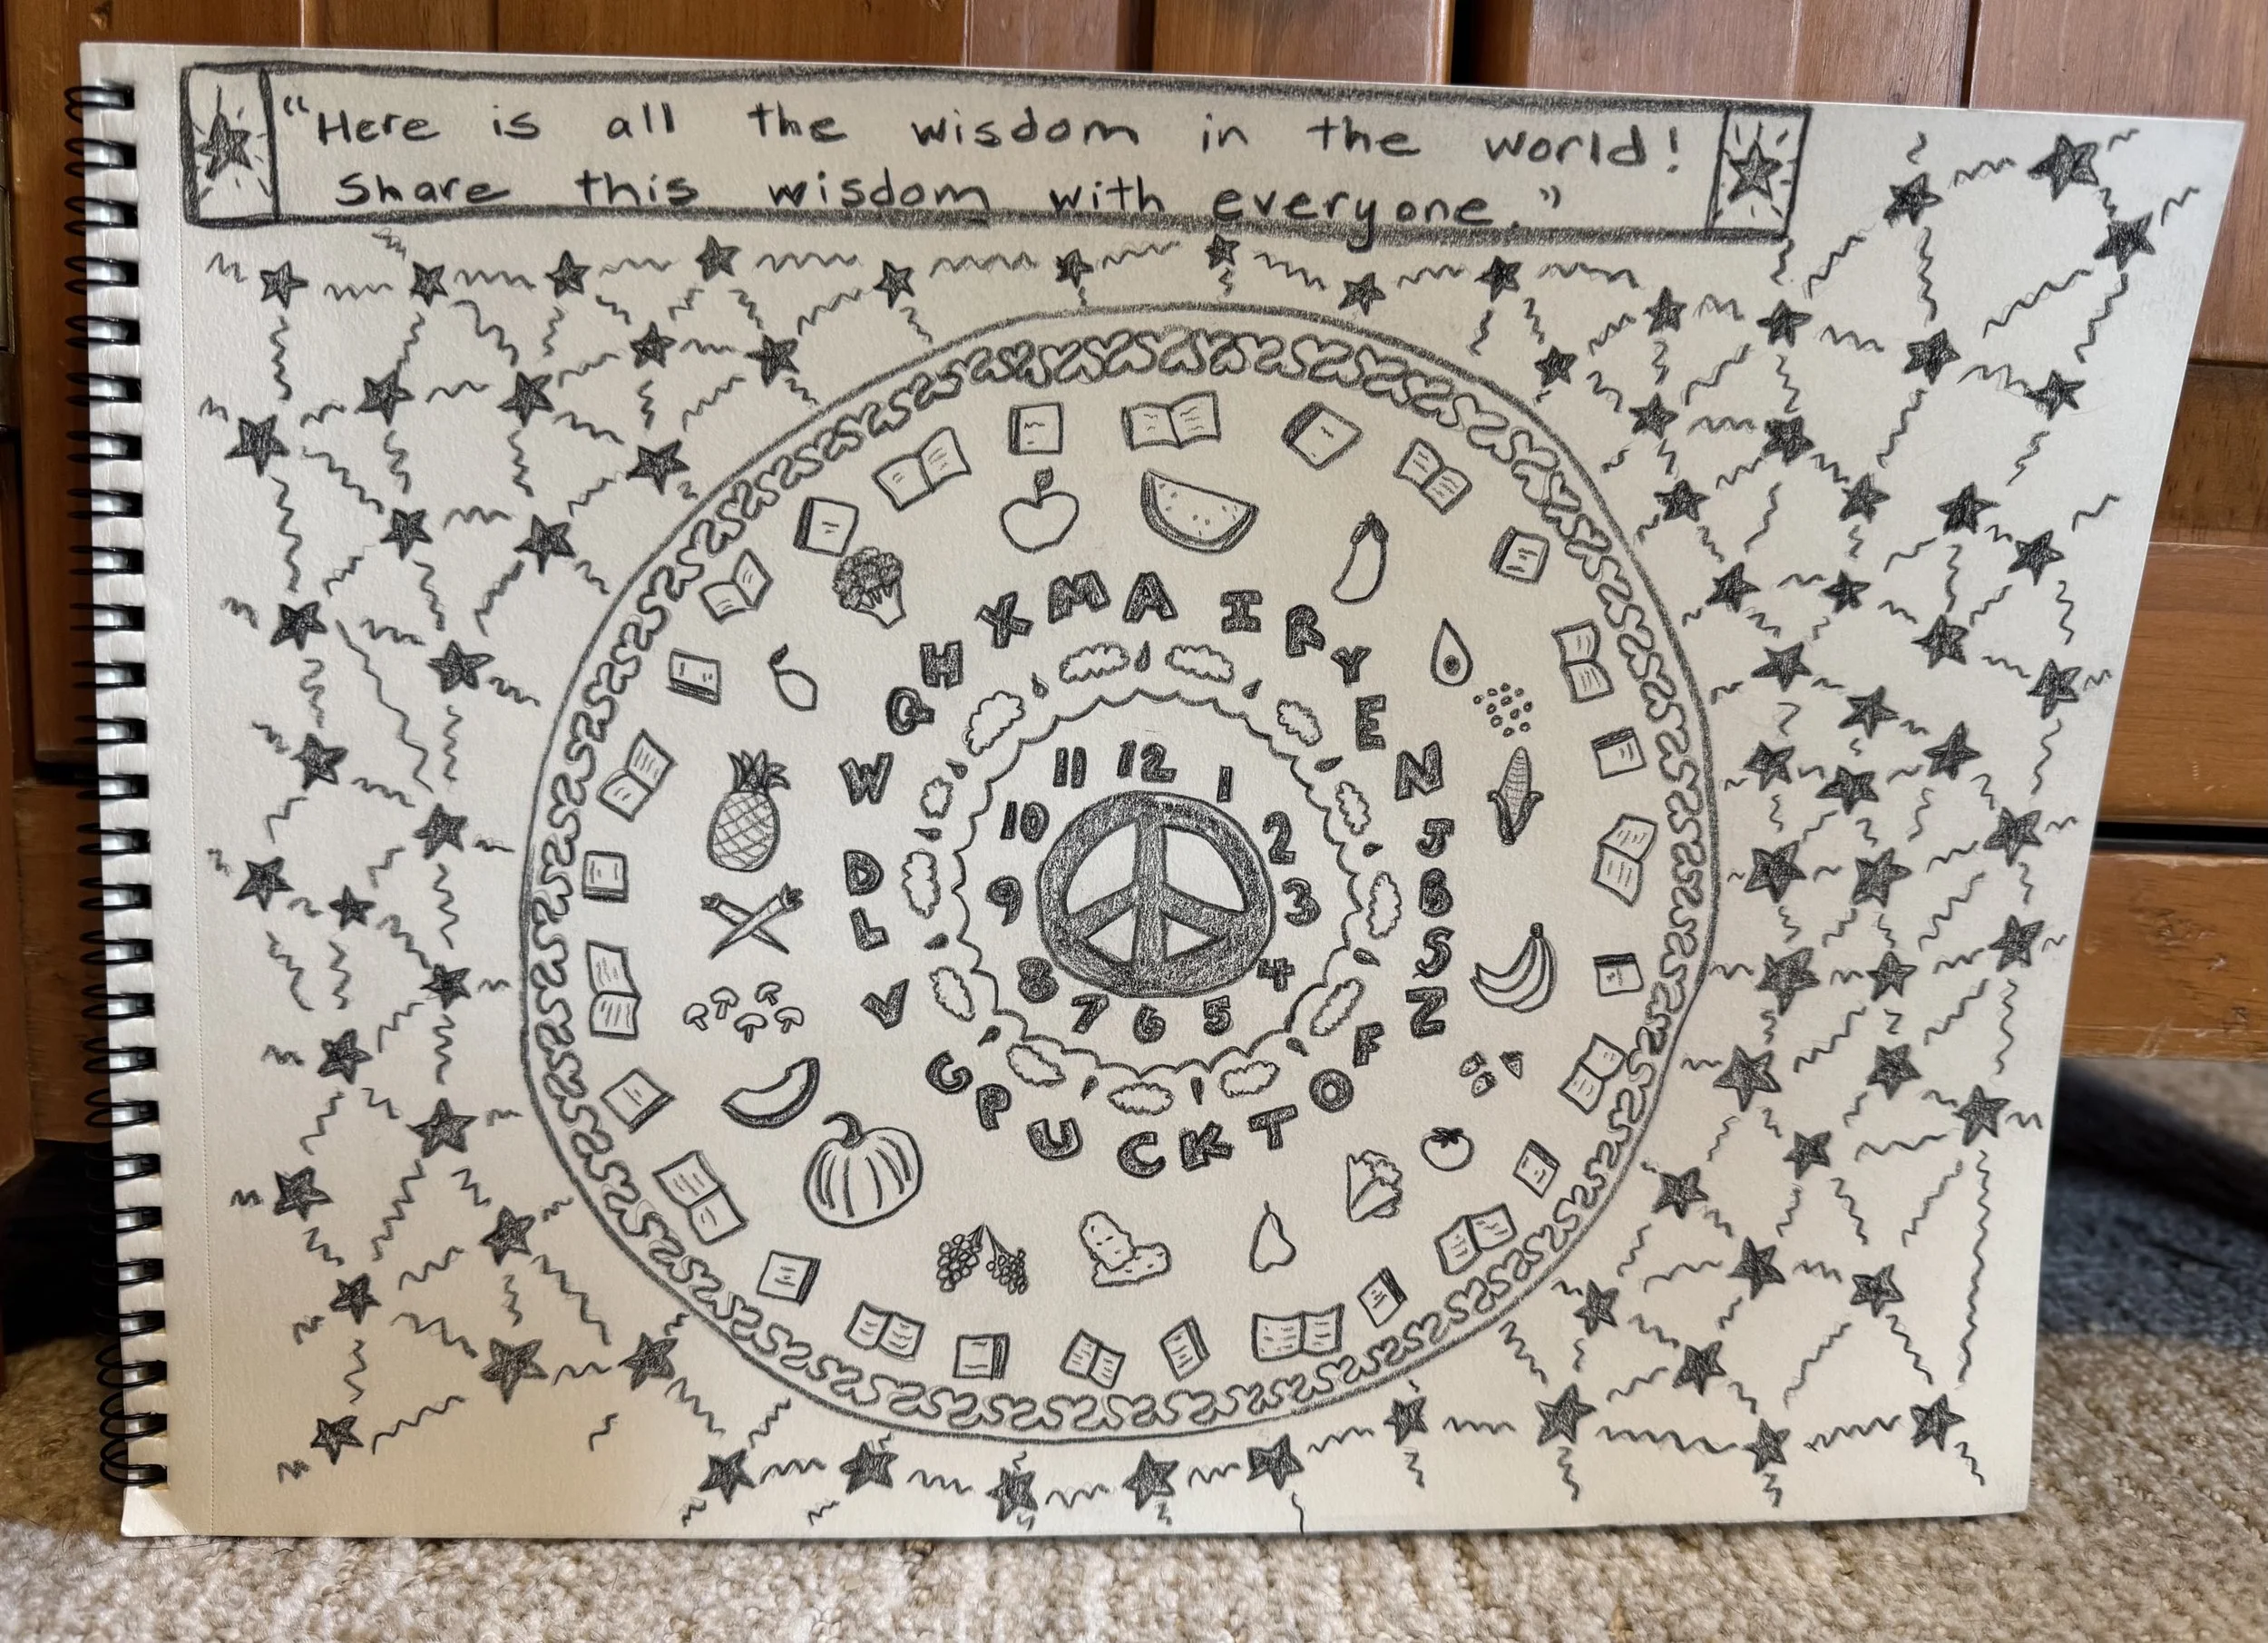 "Here is all the wisdom in the world!
Share this wisdom with everyone."
12
1
2
3
4
5
6
7
8
9
10
11
A
I
R
Y
E
N
J
B
S
Z
F
O
T
K
C
U
P
G
V
L
D
W
Q
H
X
M